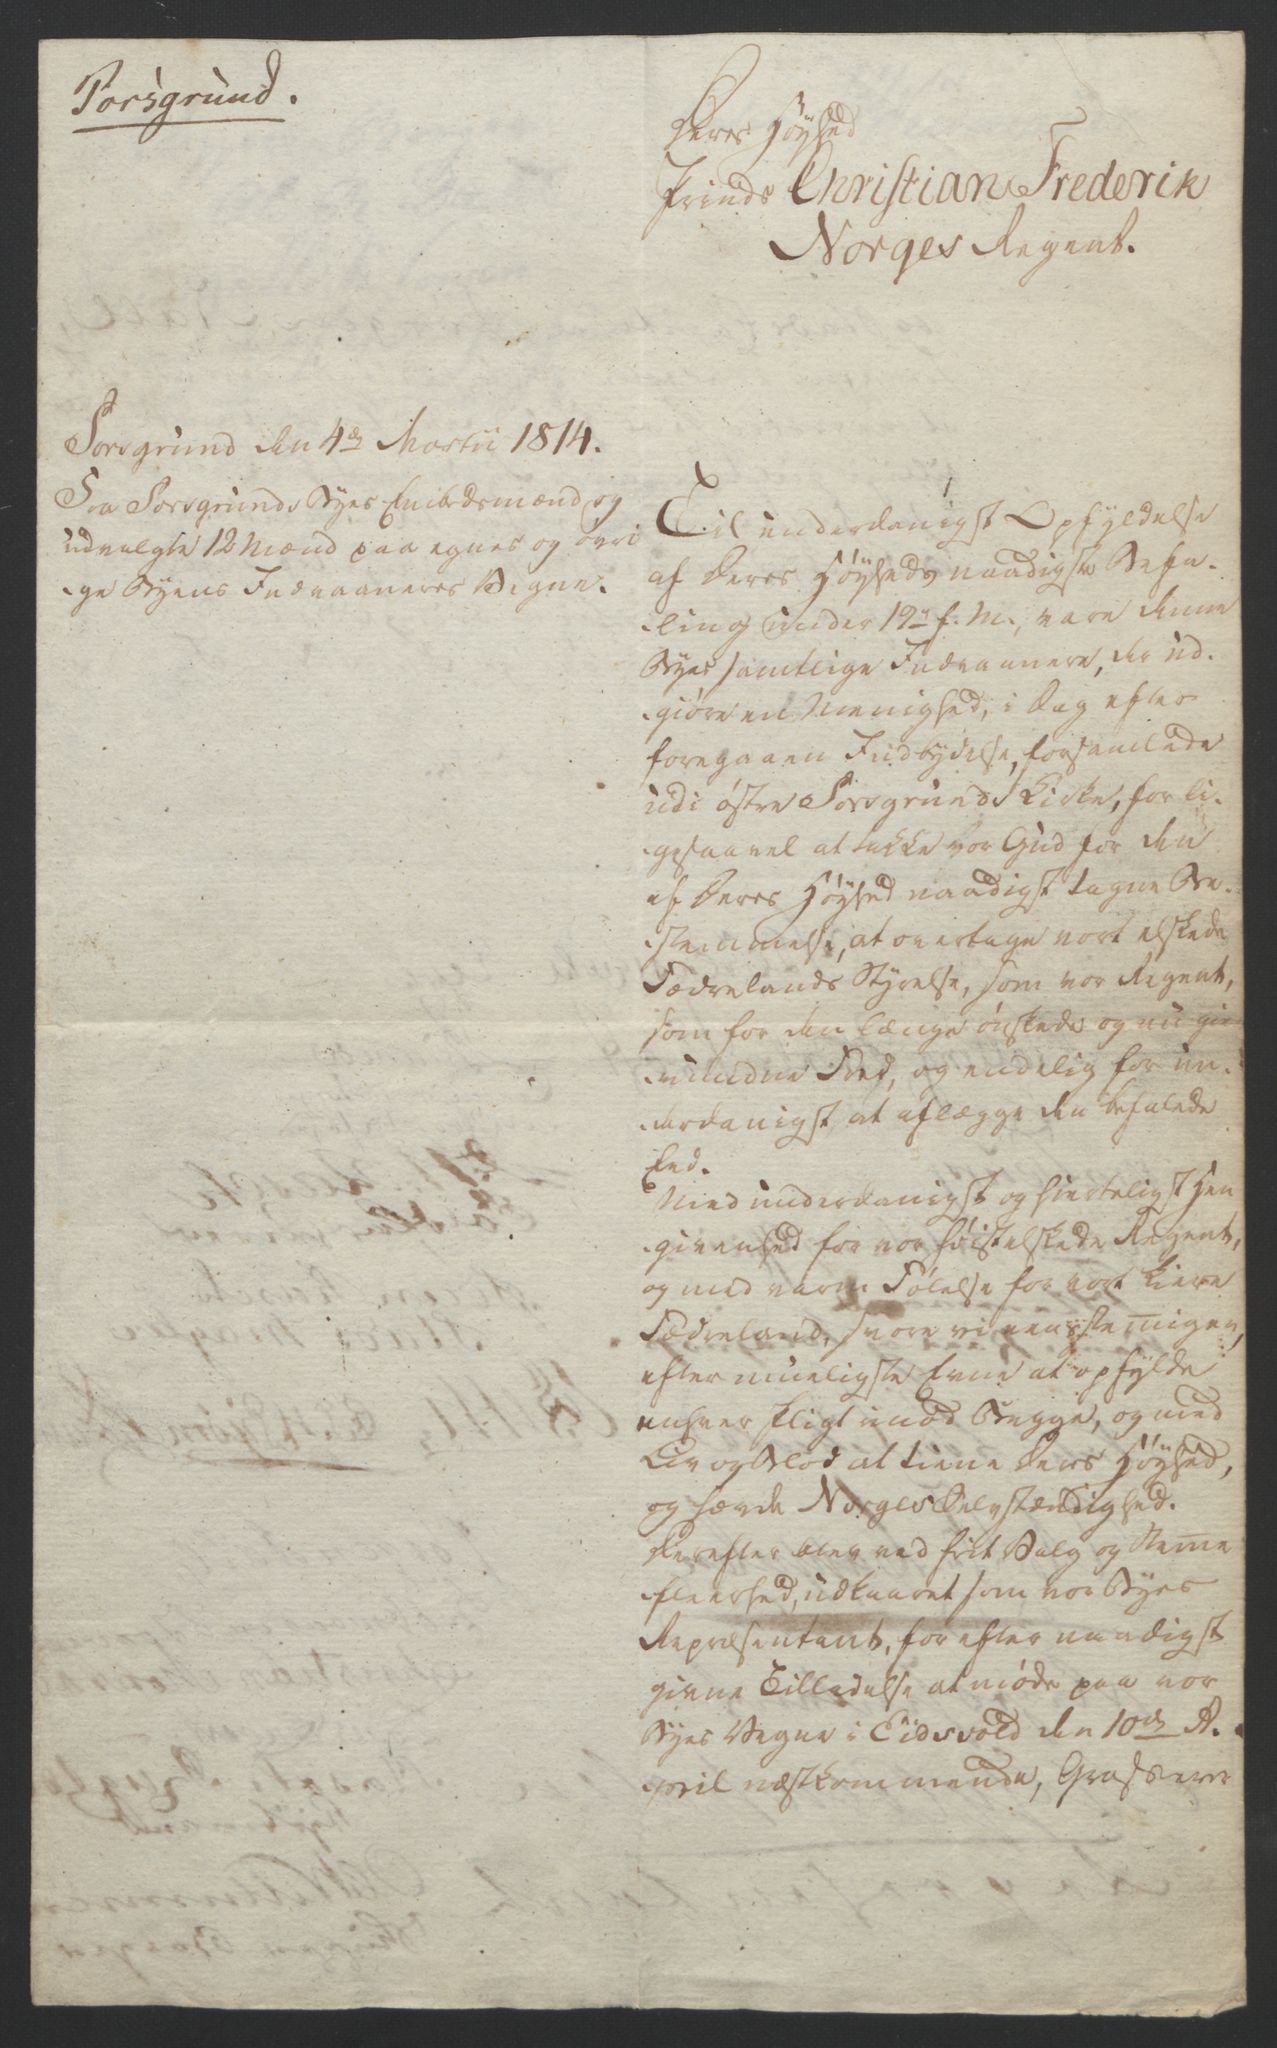 Porsgrund.
Deres Høyhed
Prinds Christian Frederik
Norges Regent.
Porsgrund den 4de Martii 1814.
Fra Porsgrunds Byes Embedsmænd og
udvalgte 12 Mænd paa egnes og øvri
-ge Byens Indvaaneres Vegne.
Til underdanigst Opfyldelse
af Deres Høyheds naadigste Befa-
-ling under 19de f. M., vare denne
Byes samtlige Indvaanere, der ud-
-giøre en Menighed, i Dag efter
foregaaen Indbydelse, forsamlede
udi østre Porsgrunds Kirke, for li-
-gesaavel at takke vor Gud for den
af Deres Høyhed naadigst tagne Be-
-stemmelse, at overtage vort elskede
Fædrelands Styrelse, som vor Regent,
som for den længe ønskede og nu gien-
-vundne Fred, og endelig for un-
-derdanigst at aflægge den befalede
Eed.
Med underdanigst og hierteligst Hen
-givenhed for vor høistelskede Regent,
og med varm Følelse for vort kiere
Fædreland, svore vi eensstemigen,
efter mueligste Evne at opfylde
enhver Pligt imod Begge, og med
Liv og Blod at tiene Deres Høyhed,
og hævde Norges Selvstændighed.
Derefter blev ved frit Valg og Stemme
fleerhed, udkaaret som vor Byes
Repræsentant, for efter naadigst
givne Tilladelse at møde paa vor
Byes Vegne i Eidsvold den 10de A-
-pril næstkommende, Grosserer